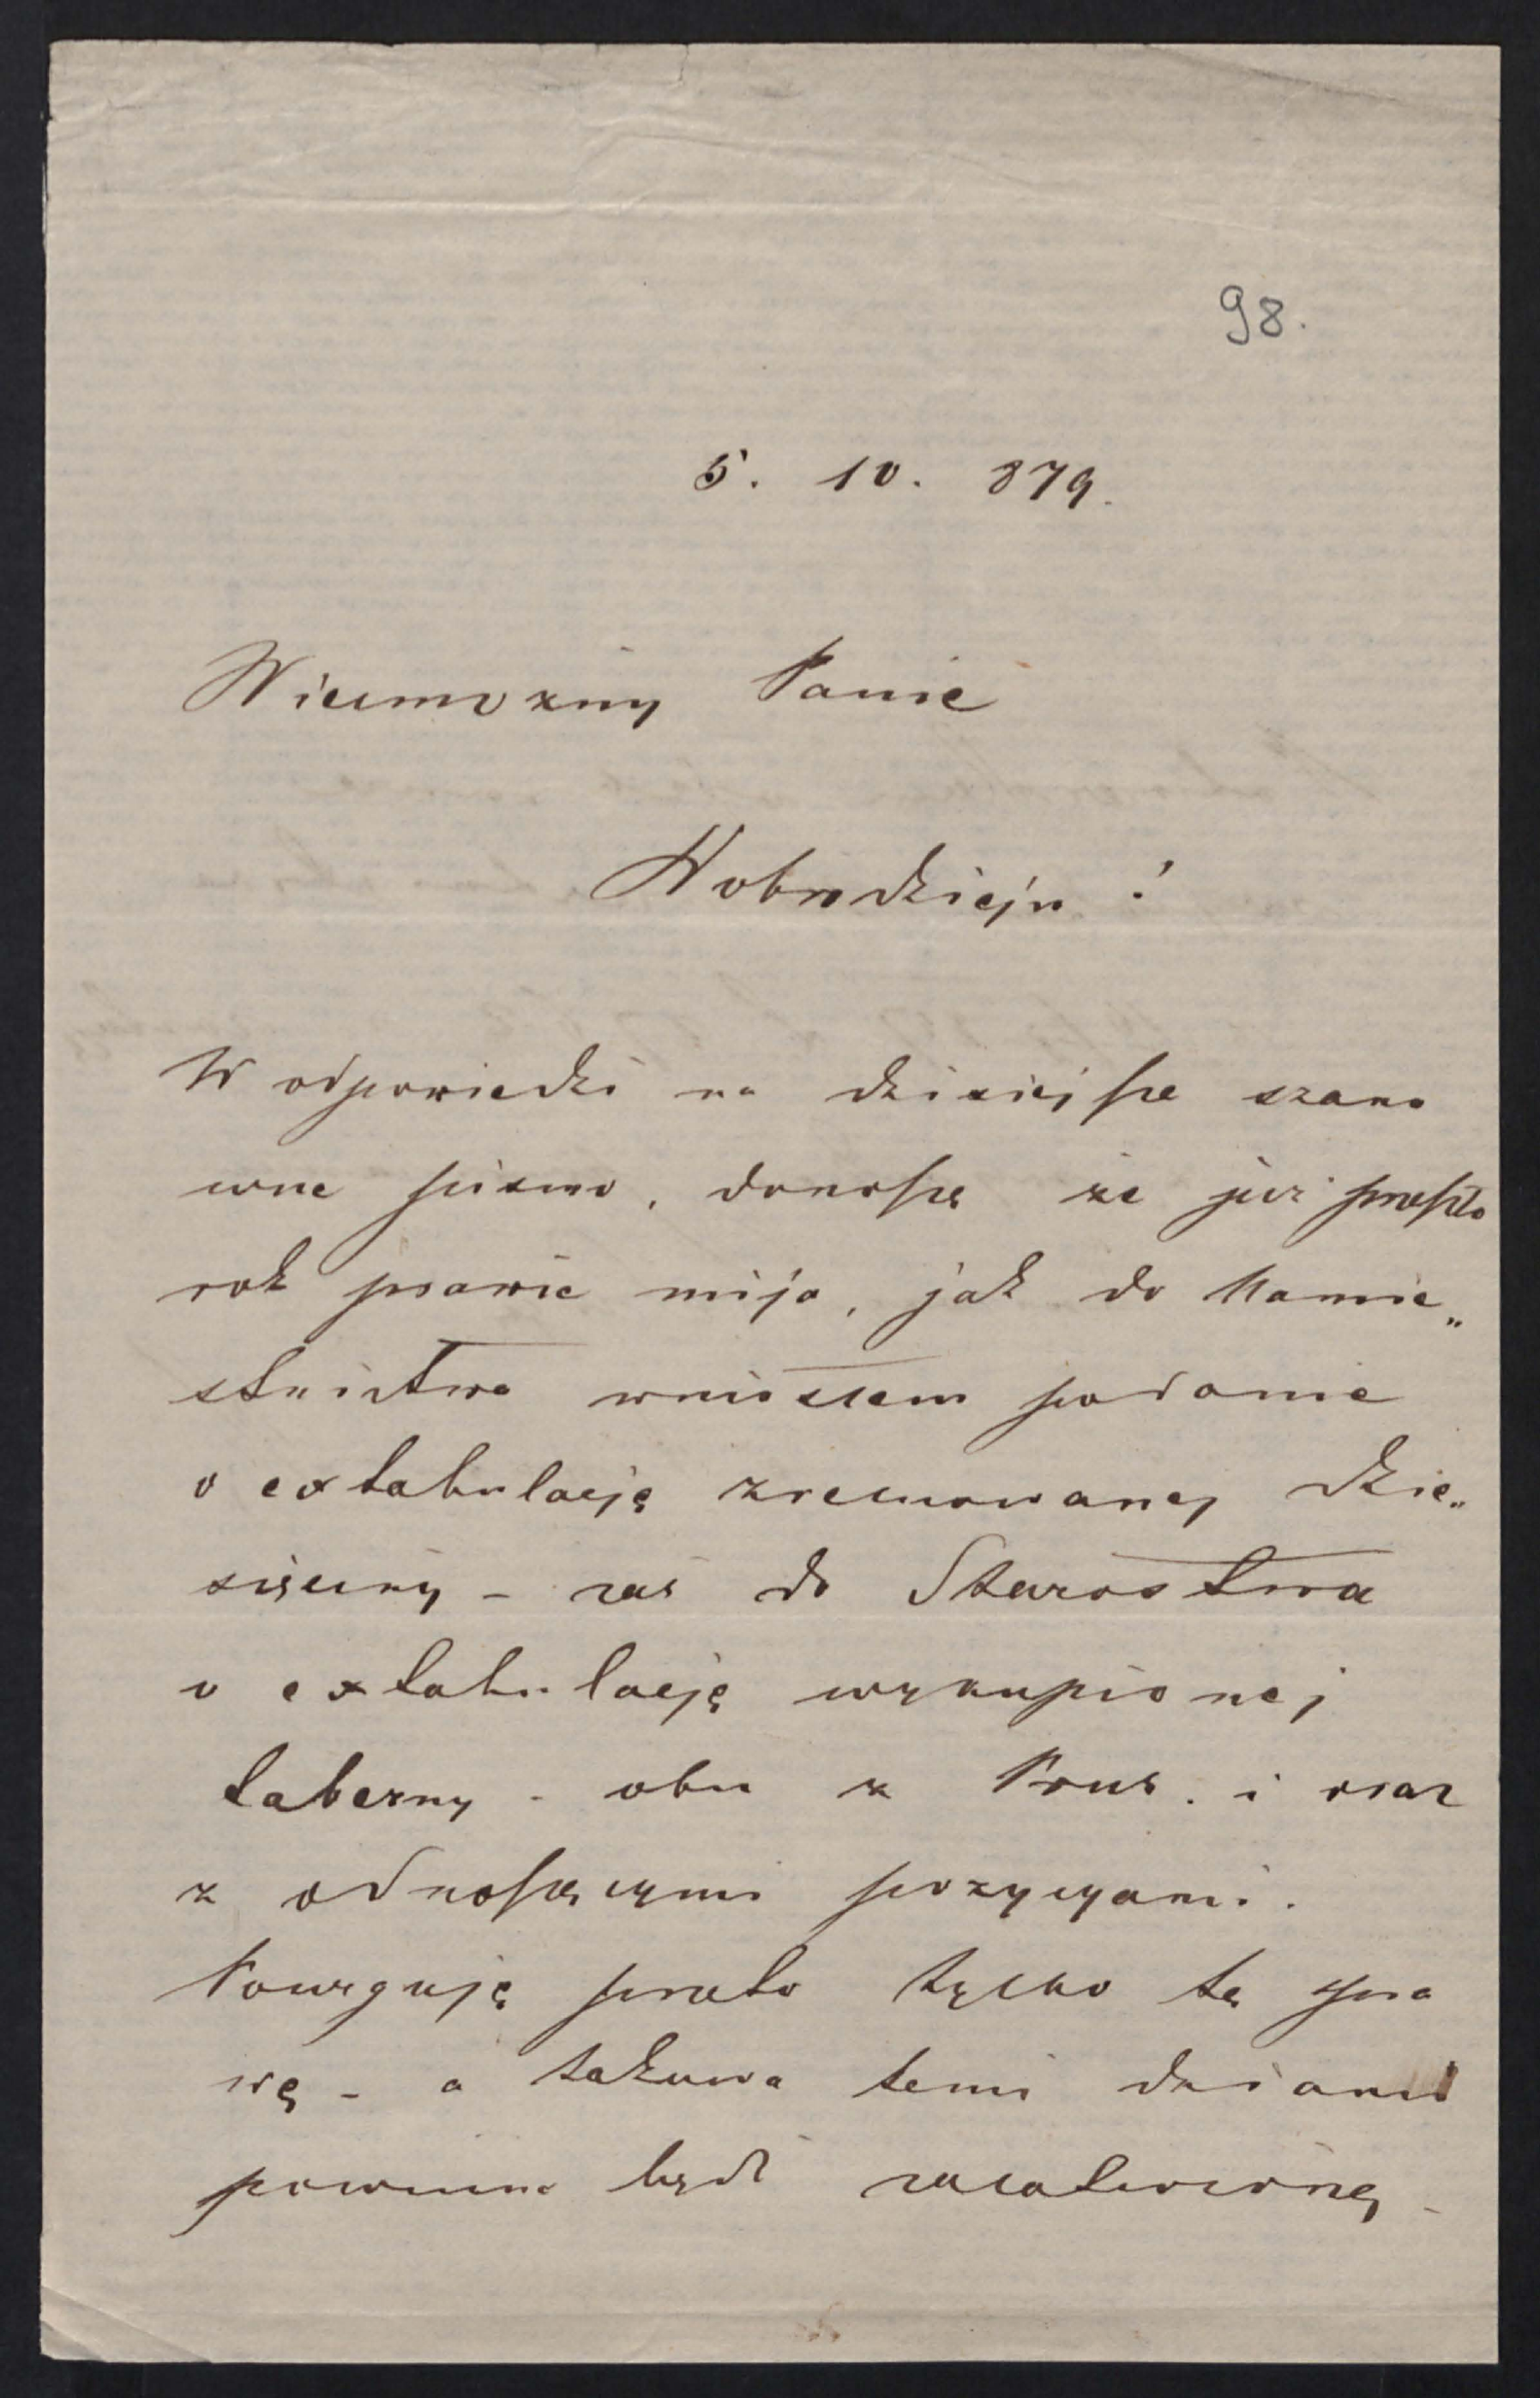 98.
5. 10. 879.
Wielmożny Panie
Dobrodzieju!
W odpowiedzi na dzisiejsze szano
wne pismo, donoszę że już przeszło
rok prawie mija, jak do Namie„
stnictwa wniosłem podanie
o extabulację zrelluowanej dzie„
sięciny – zaś do Starostwa
o extabulacją wykupionej
taberny – obu z Prus. i oraz
z odnoszącymi pozycyami.
Powrguję przeto tylko tę spra
wę – a takowa temi dniami
powinna być załatwioną –